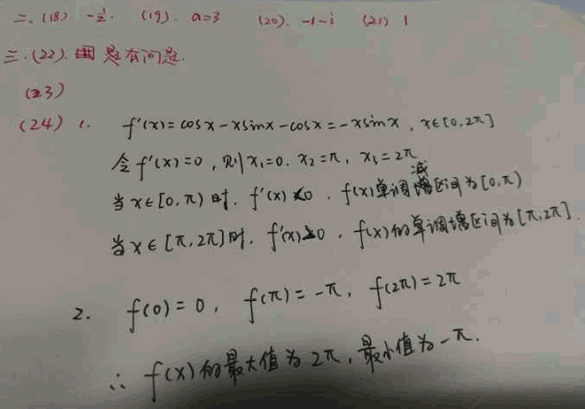 二、(18) -i. (19). a=3 (20). -1-i (21) 1
三.(22). 题有问题.
(23)
(24) 1. f'(x)=cosx-xsinx-cosx=-xsinx, x∈[0,2π]
令f'(x)=0,则x₁=0, x₂=π, x₃=2π
当x∈[0,π)时, f'(x)<0, f(x)单调减区间为[0,π)
当x∈[π,2π]时, f'(x)≥0, f(x)的单调增区间为[π,2π]
2. f(0)=0, f(π)=-π, f(2π)=2π
∴ f(x)的最大值为2π,最小值为-π.